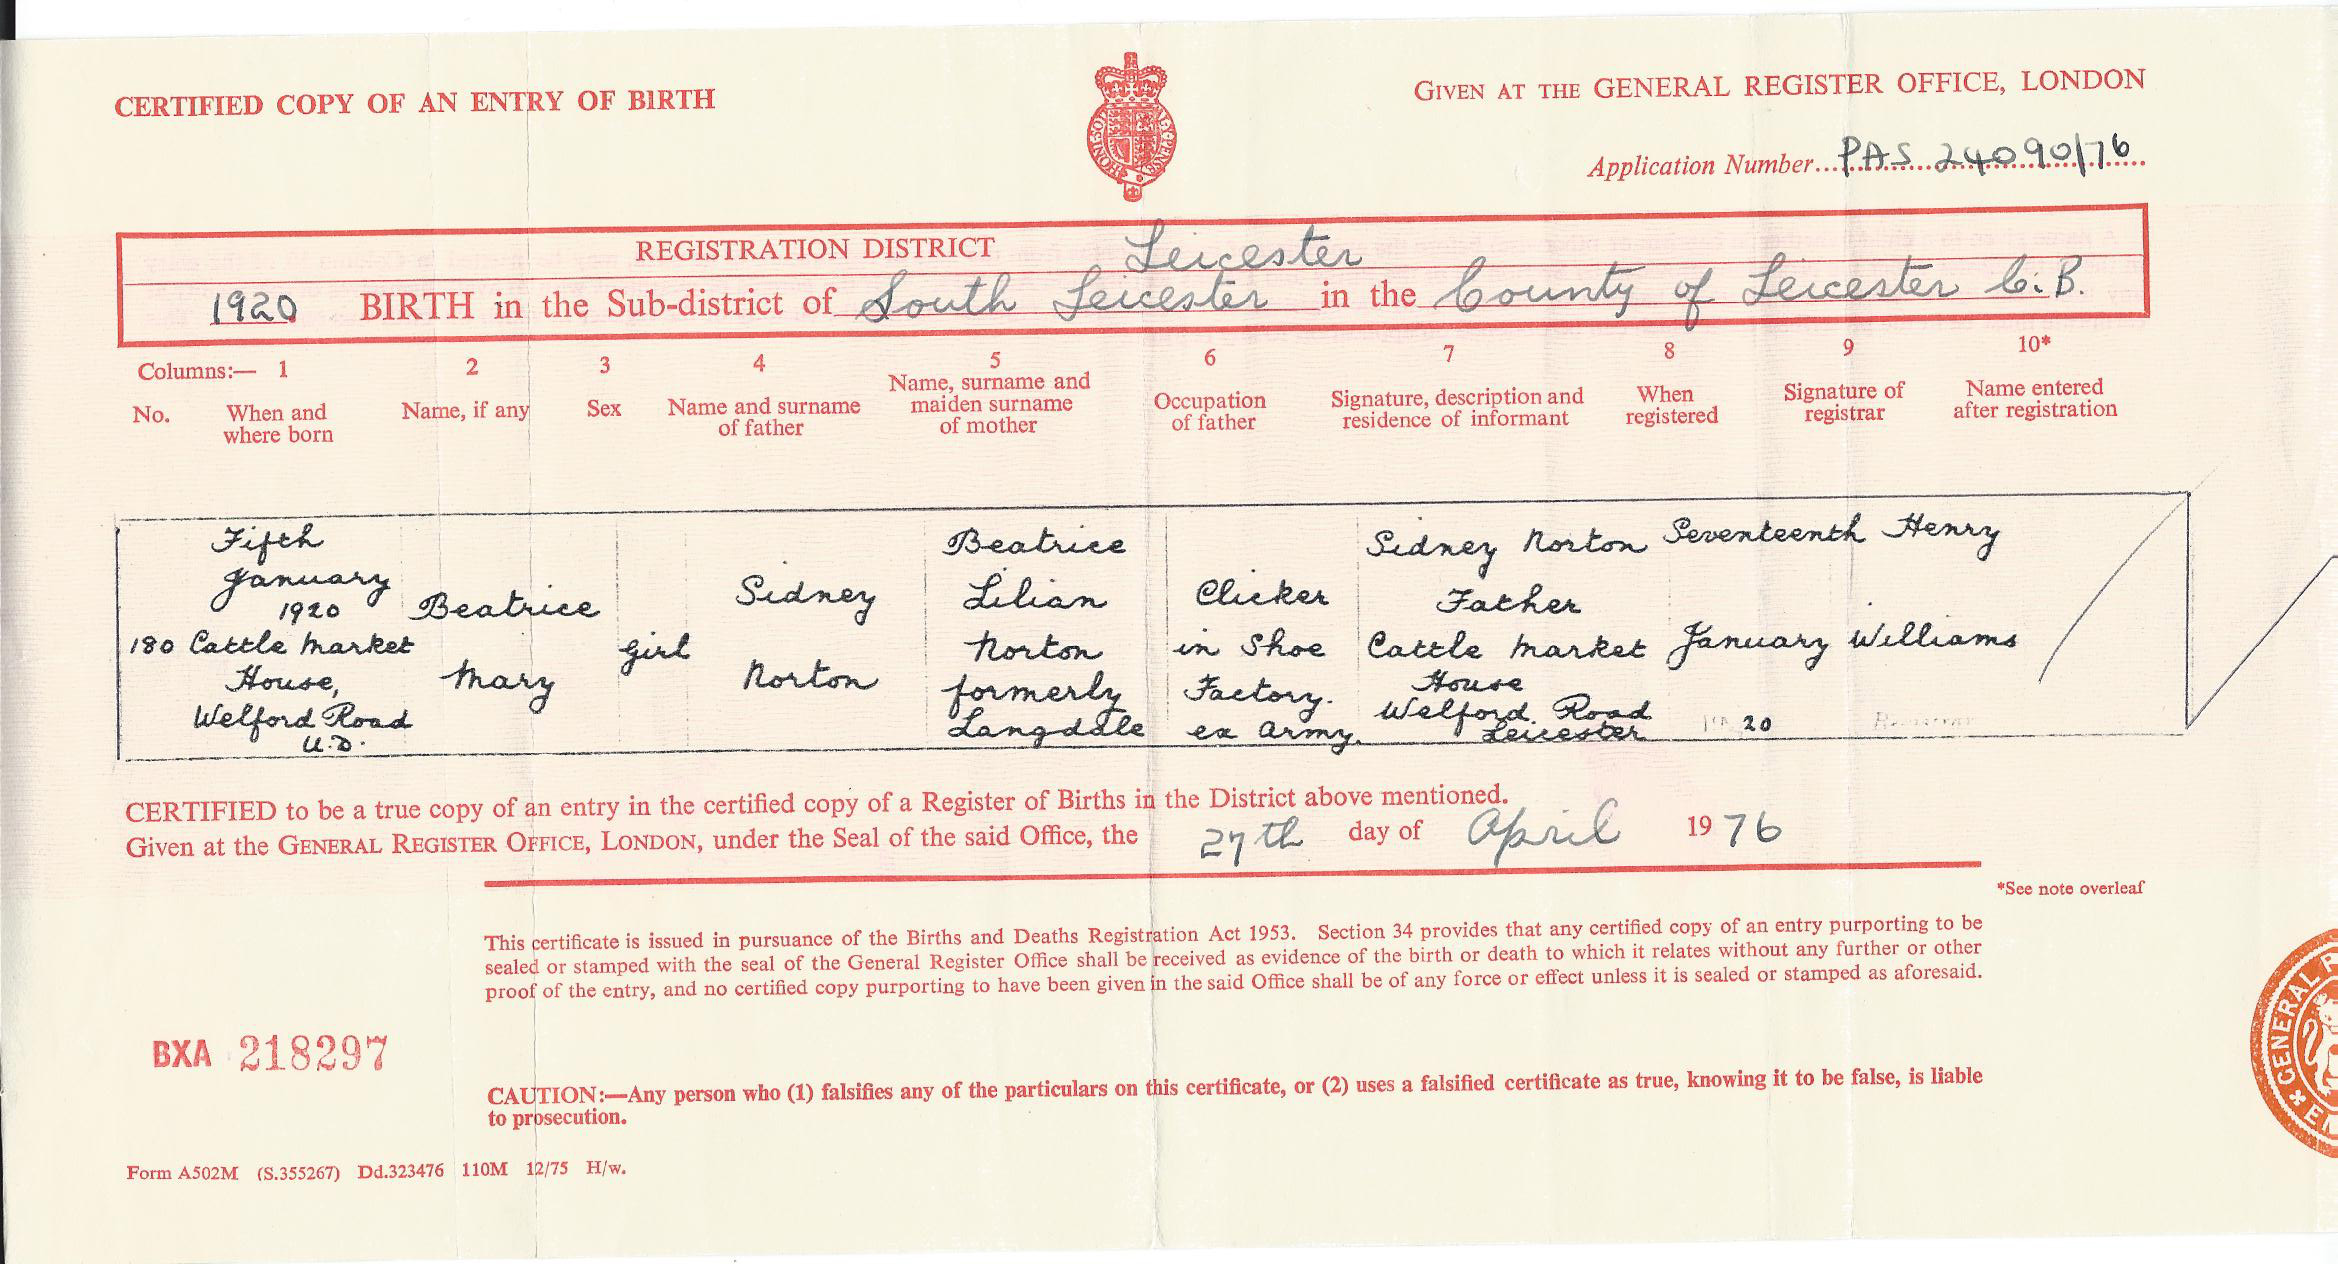 CERTIFIED COPY OF AN ENTRY OF BIRTH
GIVEN AT THE GENERAL REGISTER OFFICE, LONDON
Application Number PAS 24090/76
REGISTRATION DISTRICT Leicester
1920 BIRTH in the Sub-district of South Leicester in the County of Leicester C.B.
Columns:— 1 2 3 4 5 6 7 8 9 10*
No.
When and
where born
Name, if any
Sex
Name and surname
of father
Name, surname and
maiden surname
of mother
Occupation
of father
Signature, description and
residence of informant
When
registered
Signature of
registrar
Name entered
after registration
180
Fifth
January
1920
Cattle Market
House,
Welford Road
U.D.
Beatrice
Mary
girl
Sidney
Norton
Beatrice
Lilian
Norton
formerly
Langdale
Clicker
in Shoe
Factory.
ex Army.
Sidney Norton
Father
Cattle Market
House
Welford Road
Leicester
Seventeenth
January
20
Henry
Williams
CERTIFIED to be a true copy of an entry in the certified copy of a Register of Births in the District above mentioned.
Given at the GENERAL REGISTER OFFICE, LONDON, under the Seal of the said Office, the 27th day of April 1976
*See note overleaf
This certificate is issued in pursuance of the Births and Deaths Registration Act 1953. Section 34 provides that any certified copy of an entry purporting to be
sealed or stamped with the seal of the General Register Office shall be received as evidence of the birth or death to which it relates without any further or other
proof of the entry, and no certified copy purporting to have been given in the said Office shall be of any force or effect unless it is sealed or stamped as aforesaid.
BXA 218297
CAUTION:—Any person who (1) falsifies any of the particulars on this certificate, or (2) uses a falsified certificate as true, knowing it to be false, is liable
to prosecution.
Form A502M (S.355267) Dd.323476 110M 12/75 H/w.
GENERAL